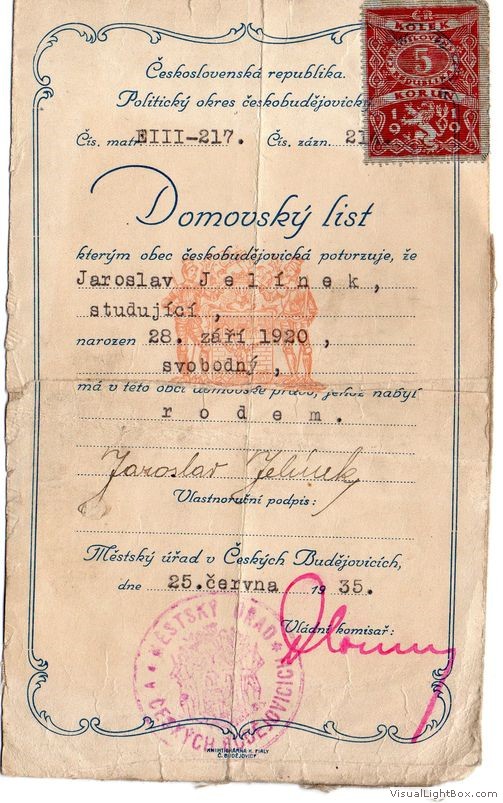 Československá republika.
Politický okres českobudějovický
Čís. matr. EIII-217. Čís. zázn. 21
KOLEK
5
KORUN
1919
Domovský list
kterým obec českobudějovická potvrzuje, že
Jaroslav Jelínek,
studující,
narozen 28. září 1920,
svobodný,
má v této obci domovské právo, jehož nabyl
rodem.
Jaroslav Jelínek
Vlastnoruční podpis:
Městský úřad v Českých Budějovicích,
dne 25. června 1935.
Vládní komisař:
MĚSTSKÝ ÚŘAD
V ČESKÝCH BUDĚJOVICÍCH
KNIHTISKÁRNA K. FIALY
Č. BUDĚJOVICE
VisualLightBox.com